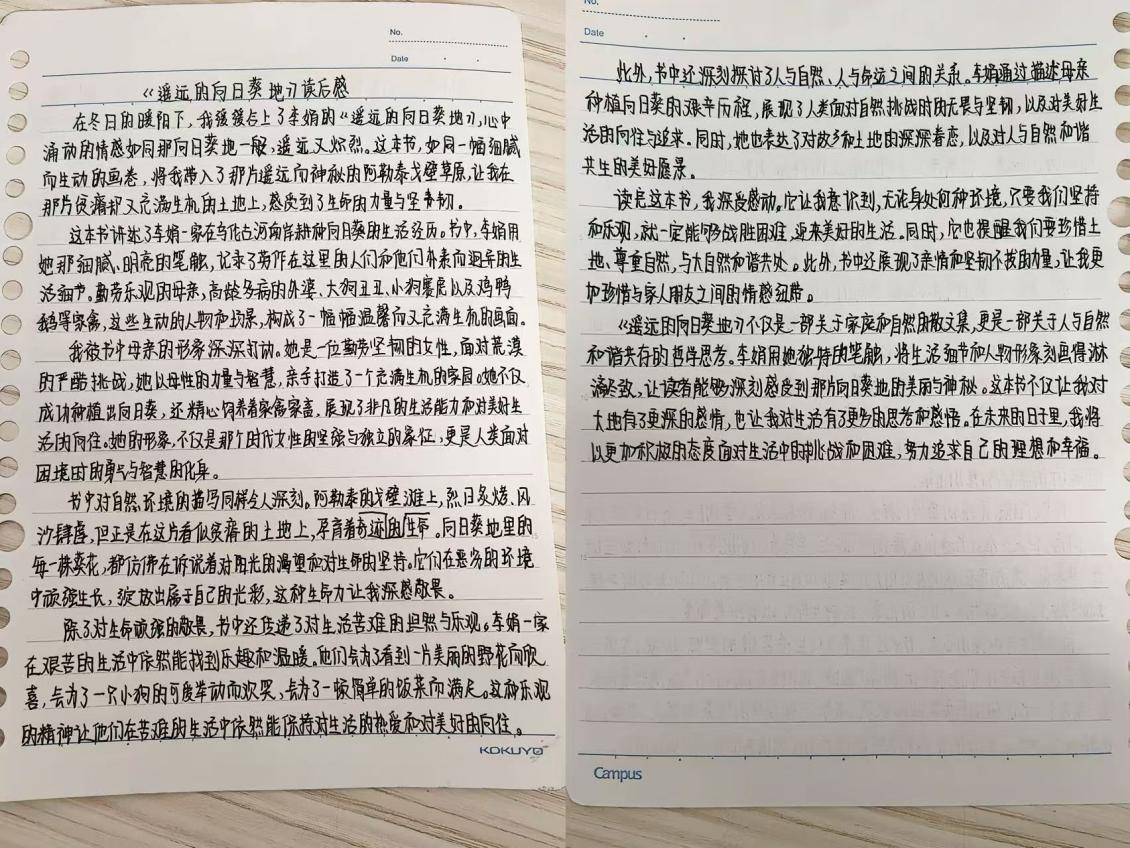 No.
Date
《遥远的向日葵地》读后感
在冬日的暖阳下，我缓缓合上了李娟的《遥远的向日葵地》，心中
涌动的情感如同那向日葵地一般，遥远又炽烈。这本书，如同一幅细腻
而生动的画卷，将我带入了那片遥远而神秘的阿勒泰戈壁草原，让我在
那片贫瘠却又充满生机的土地上，感受到了生命的力量与坚韧。
这本书讲述了李娟一家在乌伦古河南岸耕种向日葵的生活经历。书中，李娟用
她那细腻、明亮的笔触，记录了劳作在这里的人们和他们朴素而迥异的生
活细节。勤劳乐观的母亲，高龄多病的外婆、大狗丑丑、小狗赛虎以及鸡鸭
鹅等家禽，这些生动的人物和场景，构成了一幅幅温馨而又充满生机的画面。
我被书中母亲的形象深深打动。她是一位勤劳坚韧的女性，面对荒漠
的严酷挑战，她以母性的力量与智慧，亲手打造了一个充满生机的家园。她不仅
成功种植出向日葵，还精心饲养着家禽家畜，展现了非凡的生活能力和对美好生
活的向往。她的形象，不仅是那个时代女性的坚强与独立的象征，更是人类面对
困境时的勇气与智慧的化身。
书中对自然环境的描写同样令人深刻。阿勒泰的戈壁滩上，烈日炙烤、风
沙肆虐，但正是在这片看似贫瘠的土地上，孕育着奇迹的生命。向日葵地里的
每一株葵花，都仿佛在诉说着对阳光的渴望和对生命的坚持。它们在恶劣的环境
中顽强生长，绽放出属于自己的光彩，这种生命力让我深感敬畏。
除了对生命顽强的敬畏，书中还传递了对生活苦难的坦然与乐观。李娟一家
在艰苦的生活中依然能找到乐趣和温暖。他们会为了看到一片美丽的野花而欣
喜，会为了一只小狗的可爱举动而欢笑，会为了一顿简单的饭菜而满足。这种乐观
的精神让他们在苦难的生活中依然能保持对生活的热爱和对美好的向往。
KOKUYO
No.
Date
此外，书中还深刻探讨了人与自然、人与命运之间的关系。李娟通过描述母亲
种植向日葵的艰辛历程，展现了人类面对自然挑战时的无畏与坚韧，以及对美好生
活的向往与追求。同时，她也表达了对故乡和土地的深深眷恋，以及对人与自然和谐
共生的美好愿景。
读完这本书，我深受感动。它让我意识到，无论身处何种环境，只要我们坚持
和乐观，就一定能够战胜困难，迎来美好的生活。同时，它也提醒我们要珍惜土
地、尊重自然，与大自然和谐共处。此外，书中还展现了亲情和坚韧不拔的力量，让我更
加珍惜与家人朋友之间的情感纽带。
《遥远的向日葵地》不仅是一部关于家庭和自然的散文集，更是一部关于人与自然
和谐共存的哲学思考。李娟用她独特的笔触，将生活细节和人物形象刻画得淋
漓尽致，让读者能够深刻感受到那片向日葵地的美丽与神秘。这本书不仅让我对
大地有了更深的感情，也让我对生活有了更多的思考和感悟。在未来的日子里，我将
以更加积极的态度面对生活中的挑战和困难，努力追求自己的理想和幸福。
Campus